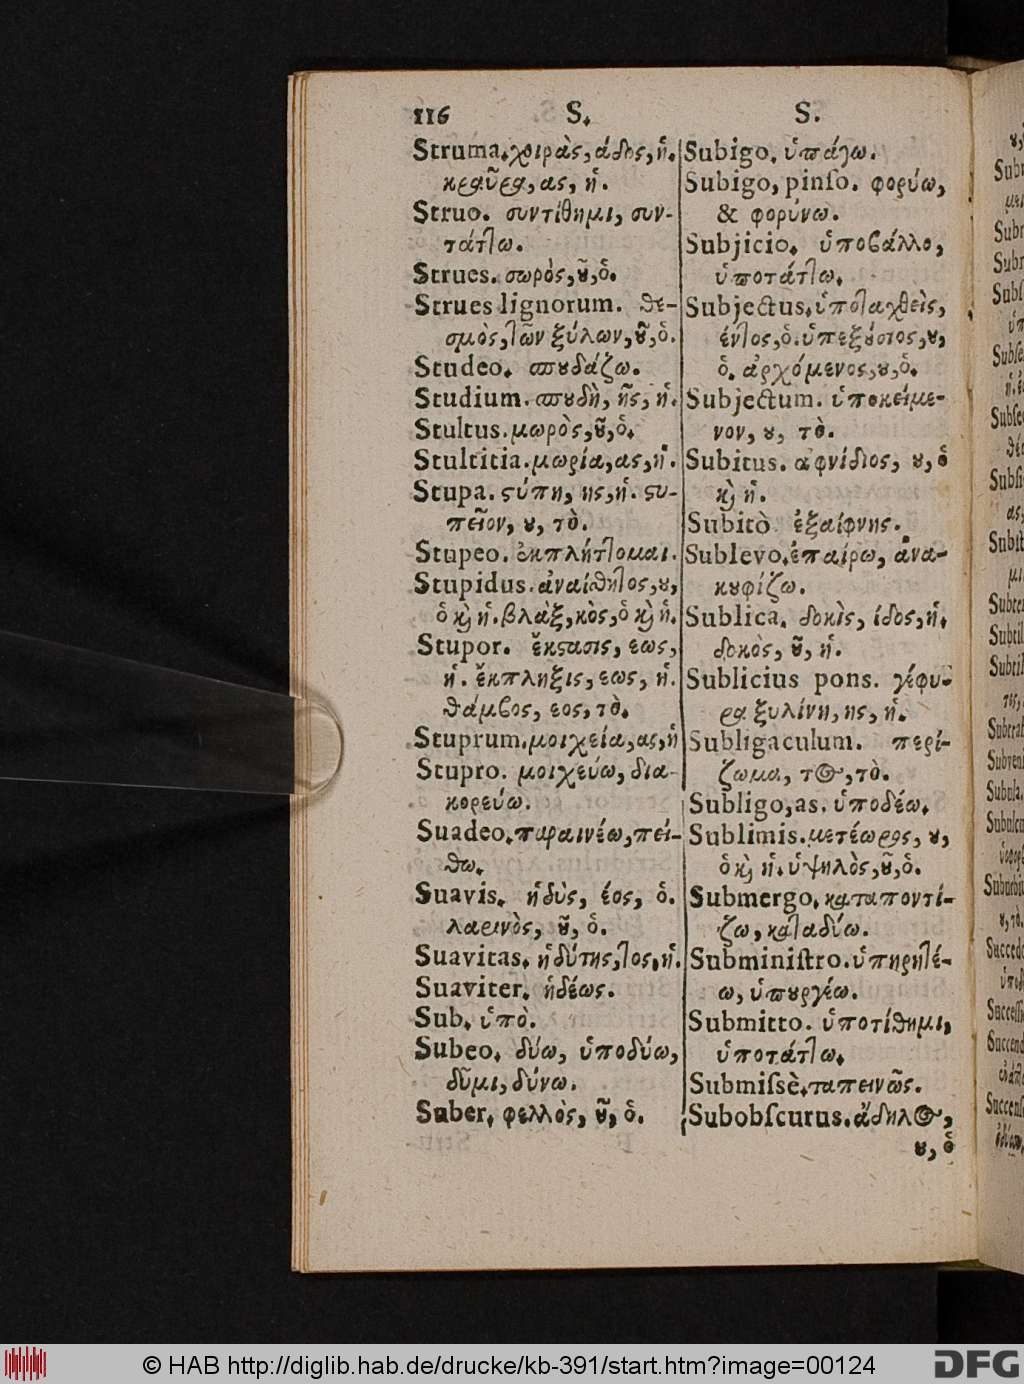 116 S. S.
Struma. χοιρὰς, άδος, ἡ.
κραῦρα, ας, ἡ.
Struo. συντίθημι, συν-
τάττω.
Strues. σωρὸς, ȣ͂, ὁ.
Strues lignorum. θε-
σμὸς, τῶν ξύλων, ȣ͂, ὁ.
Studeo. σπȣδάζω.
Studium. σπȣδὴ, ῆς, ἡ.
Stultus. μωρὸς, ȣ͂, ὁ.
Stultitia. μωρία, ας, ἡ.
Stupa. ϛύπη, ης, ἡ. ϛυ-
πεῖον, ȣ, τὸ.
Stupeo. ἐκπλήττομαι.
Stupidus. ἀναίθητος, ȣ,
ὁ κ̀ ἡ. βλὰξ, κὸς, ὁ κ̀ ἡ.
Stupor. ἔκϛασις, εως,
ἡ. ἔκπληξις, εως, ἡ.
θάμβος, εος, τὸ.
Stuprum. μοιχεία, ας, ἡ
Stupro. μοιχεύω, δια-
κορεύω.
Suadeo. παραινέω, πεί-
θω.
Suavis. ἡδὺς, έος, ὁ.
λαρινὸς, ȣ͂, ὁ.
Suavitas. ἡδύτης, τος, ἡ.
Suaviter. ἡδέως.
Sub. ὑπὸ.
Subeo. δύω, ὑποδύω,
δῦμι, δύνω.
Suber. φελλὸς, ȣ͂, ὁ.
Subigo. ὑπάγω.
Subigo, pinſo. φορύω,
& φορύνω.
Subjicio. ὑποβάλλο,
ὑποτάττω.
Subjectus. ὑποταχθεὶς,
έντος, ὁ. ὑπεξȣ́σιος, ȣ,
ὁ. ἀρχόμενος, ȣ, ὁ.
Subjectum. ὑποκείμε-
νον, ȣ, τὸ.
Subitus. αφνίδιος, ȣ, ὁ
κ̀ ἡ.
Subitò ἐξαίφνης.
Sublevo. ἐπαίρω, ἀνα-
κȣφίζω.
Sublica. δοκὶς, ίδος, ἡ.
δοκὸς, ȣ͂, ἡ.
Sublicius pons. γέφυ-
ρα ξυλίνη, ης, ἡ.
Subligaculum. περί-
ζωμα, τος, τὸ.
Subligo, as. ὑποδέω.
Sublimis. μετέωρος, ȣ,
ὁ κ̀ ἡ. ὑψηλὸς, ȣ͂, ὁ.
Submergo. καταποντί-
ζω, καταδύω.
Subminiſtro. ὑπηρετέ-
ω, ὑπȣργέω.
Submitto. ὑποτίθημι,
ὑποτάττω.
Submiſsè. ταπεινῶς.
Subobſcurus. ἄδηλος,
ȣ, ὁ
© HAB http://diglib.hab.de/drucke/kb-391/start.htm?image=00124
DFG